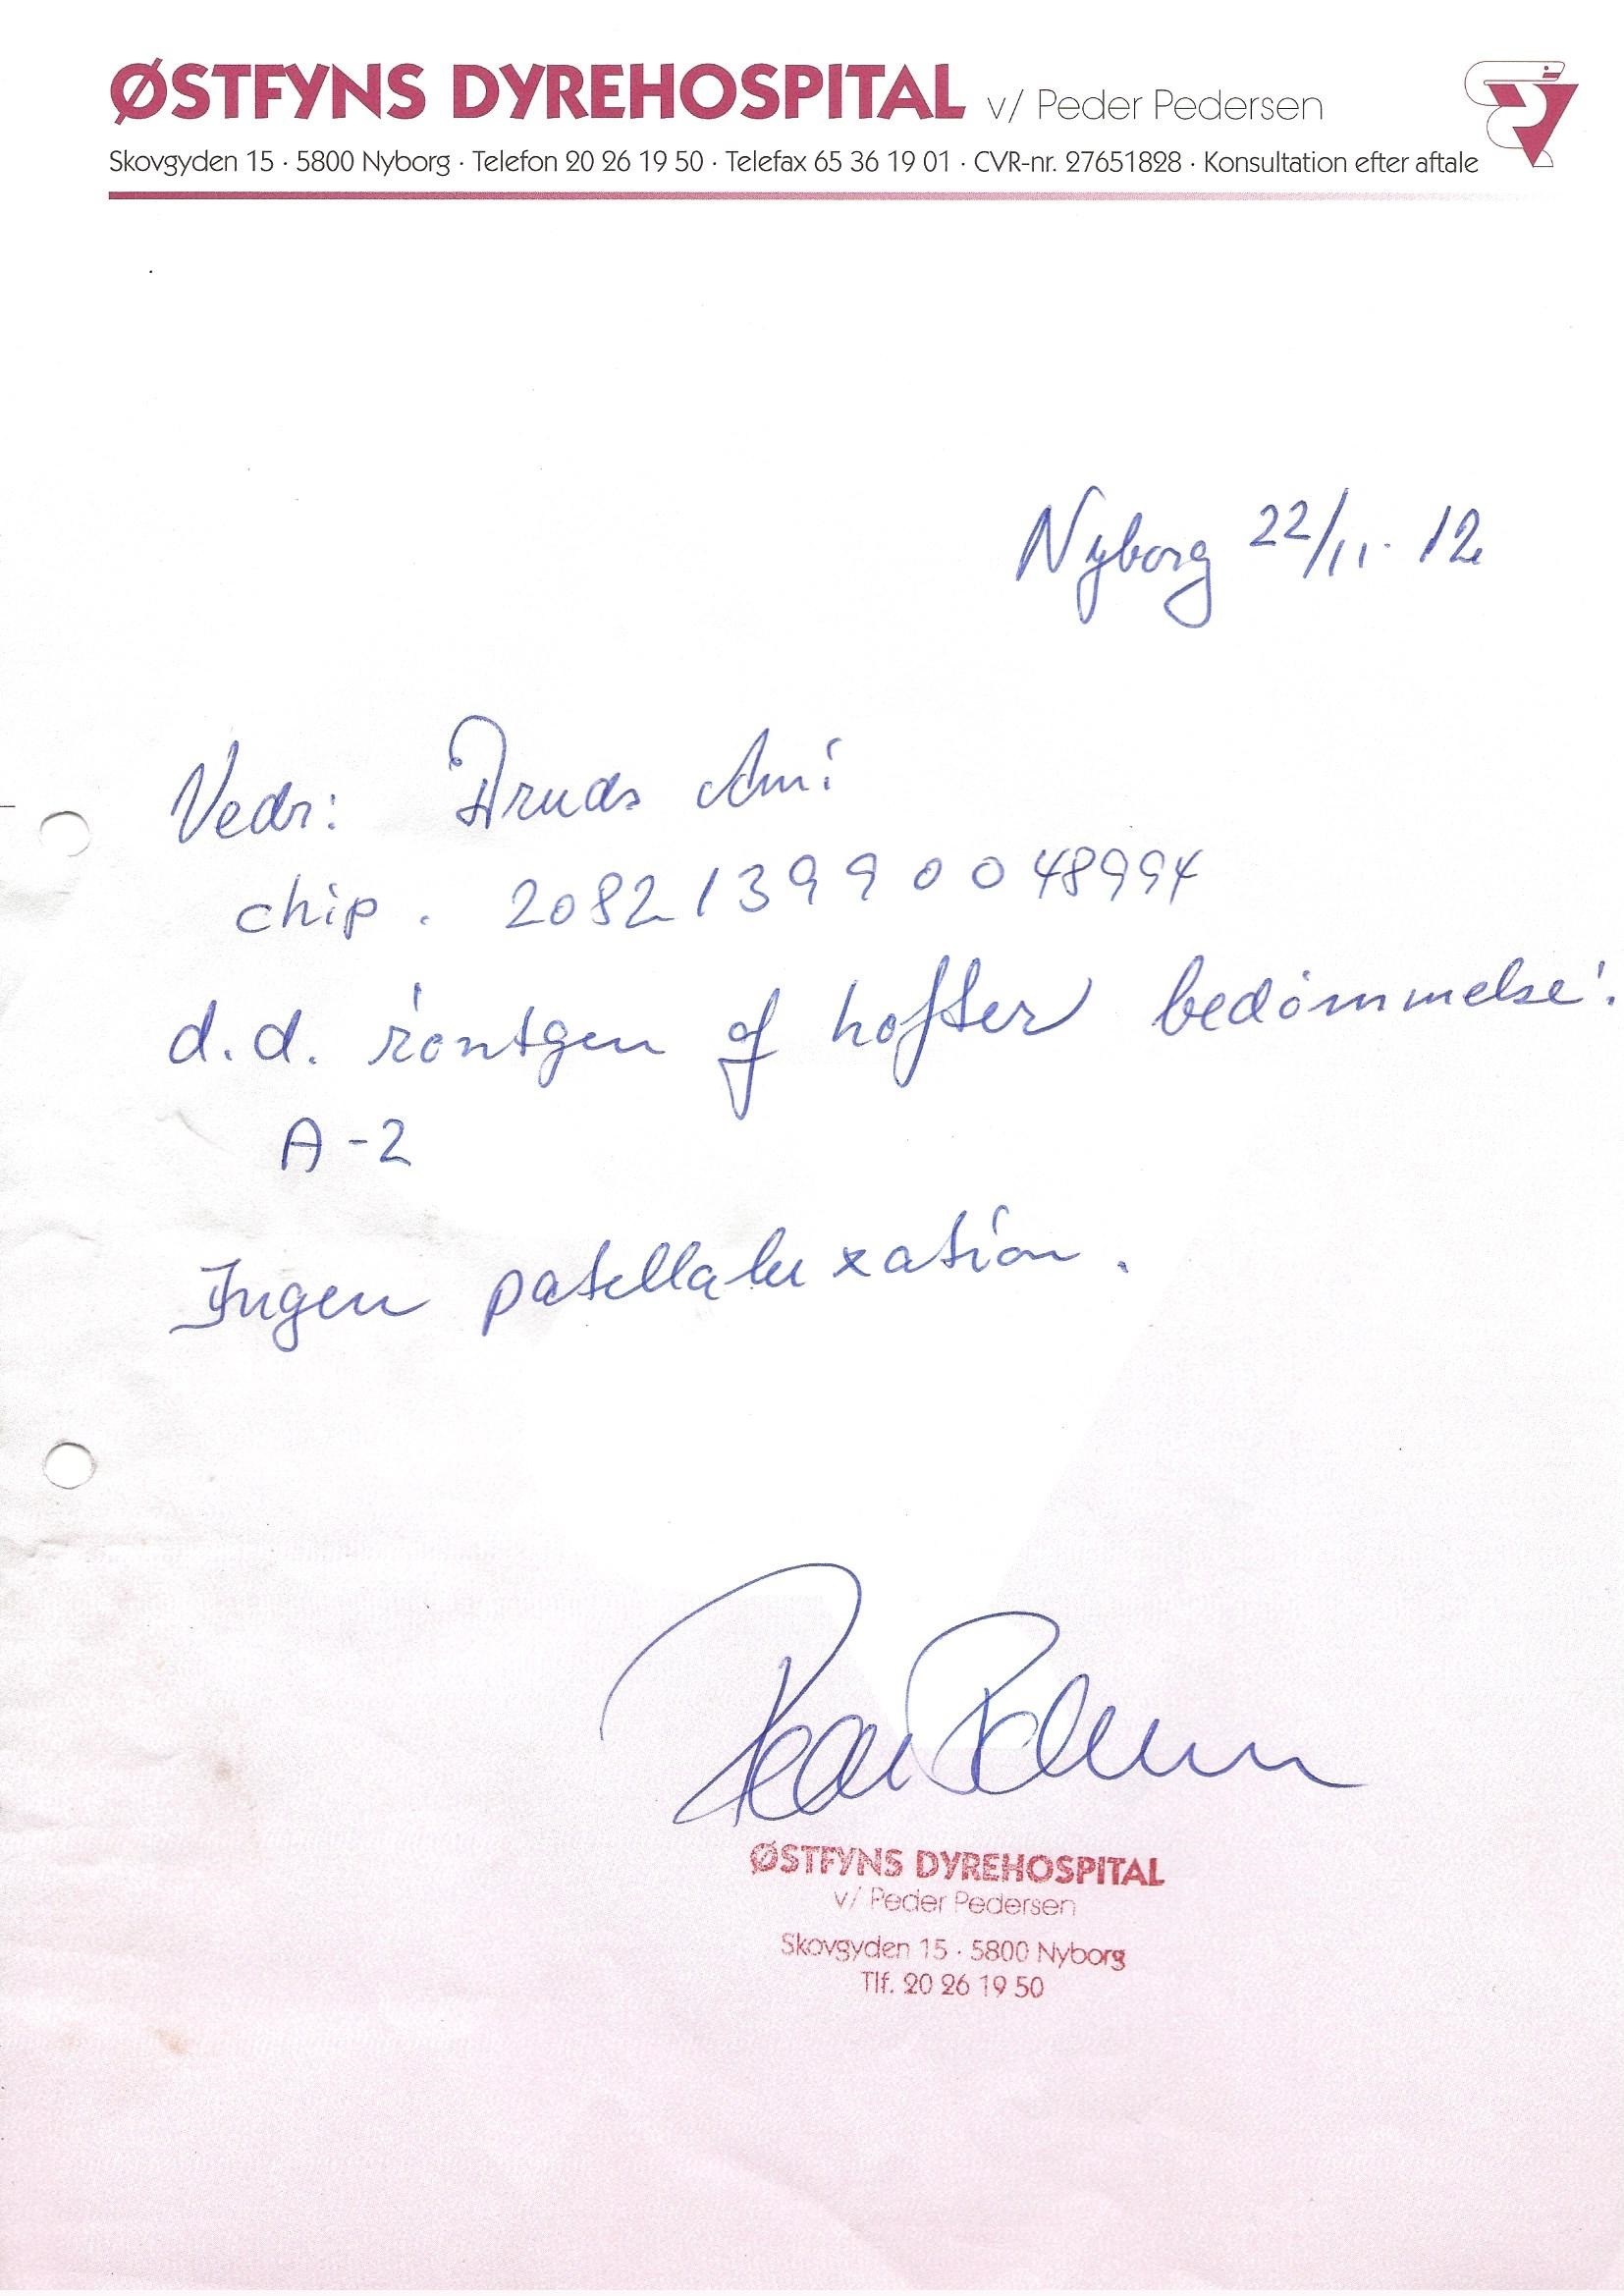 ØSTFYNS DYREHOSPITAL v/ Peder Pedersen
Skovgyden 15 · 5800 Nyborg · Telefon 20 26 19 50 · Telefax 65 36 19 01 · CVR-nr. 27651828 · Konsultation efter aftale
Nyborg 22/11. 12
Vedr: Aruds Ami
chip. 208213990048994
d.d. röntgen af hofter bedømmelse:
A-2
Ingen patellaluxation.
ØSTFYNS DYREHOSPITAL
v/ Peder Pedersen
Skovgyden 15 · 5800 Nyborg
Tlf. 20 26 19 50